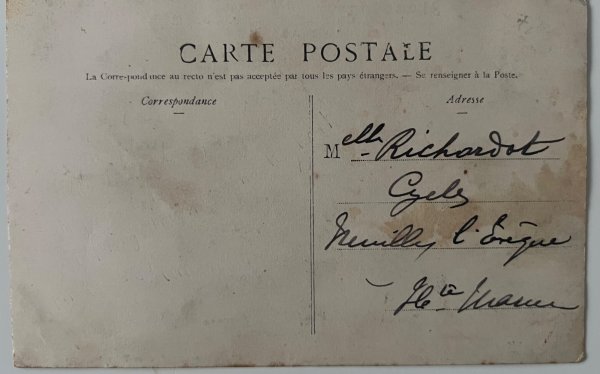 CARTE POSTALE
La Correspondance au recto n'est pas acceptée par tous les pays étrangers. — Se renseigner à la Poste.
Correspondance
Adresse
Melle Richardot
Cycles
Neuilly l'Évêque
Hte Marne